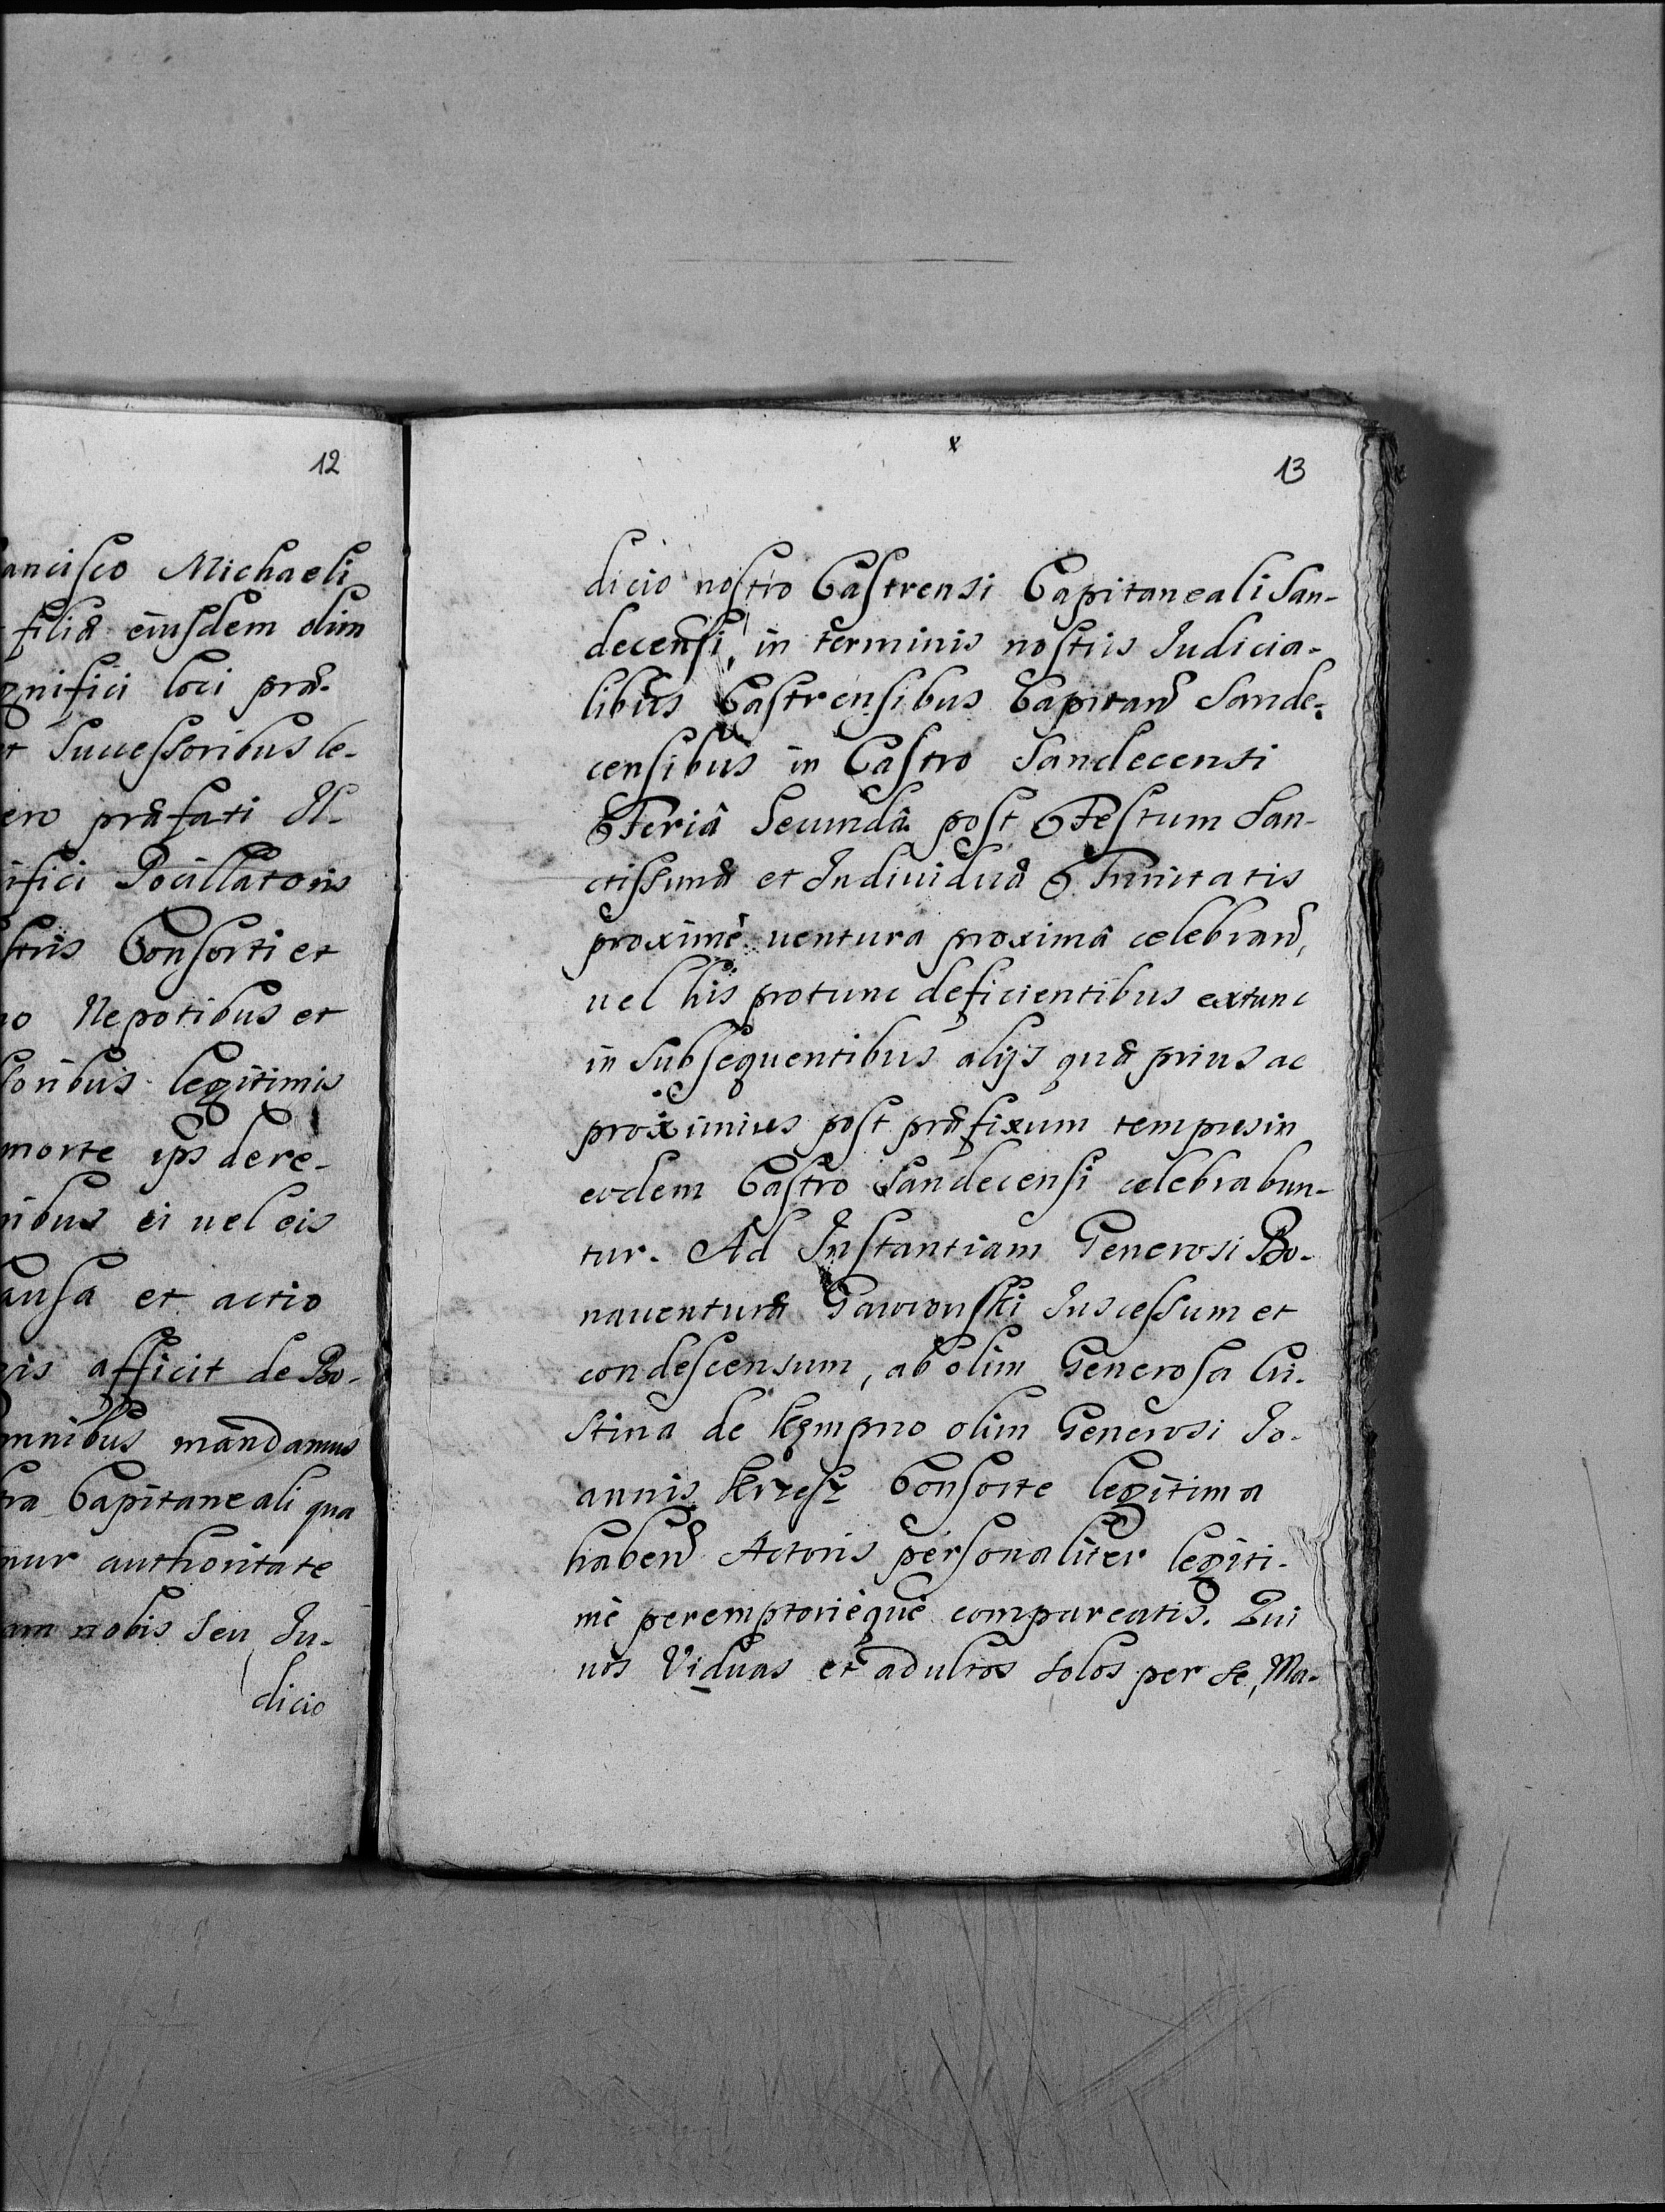 12
ancisco Michaeli
filiæ eiusdem olim
gnifici loci præ-
et Successoribus le-
ero præfati M-
ifici Pocillatoris
stris Consorti et
no Nepotibus et
soribus legitimis
morte ips dere-
nibus ei uel eis
ausa et actio
nis afficit de Bo-
mnibus mandamus
tra Capitaneali qua
mur authoritate
am nobis seu Ju-
dicio
x
13
dicio nostro Castrensi Capitaneali San-
decensi, in terminis nostris Judicia-
libus Castrensibus Capitan Sande-
censibus in Castro Sandecensi
Feriâ Secundâ post Festum San-
ctissimæ et Indiuiduæ Trinitatis
proximè uentura proximâ celebran,
uel his protunc deficientibus extunc
in Subsequentibus alijs quæ prius ac
proximius post præfixum tempus in
eodem Castro Sandecensi celebrabun-
tur. Ad Instantiam Generosi Bo-
nauenturæ Gawronski Jus cessum et
condescensum, ab olim Generosa
stina de Kempno olim Generosi Jo-
annis Krzesz Consorte legitima
haben Actoris personaliter legiti-
mè peremptorièque compareatis. Qui
uos Viduas et adultos solos per se, Ma-